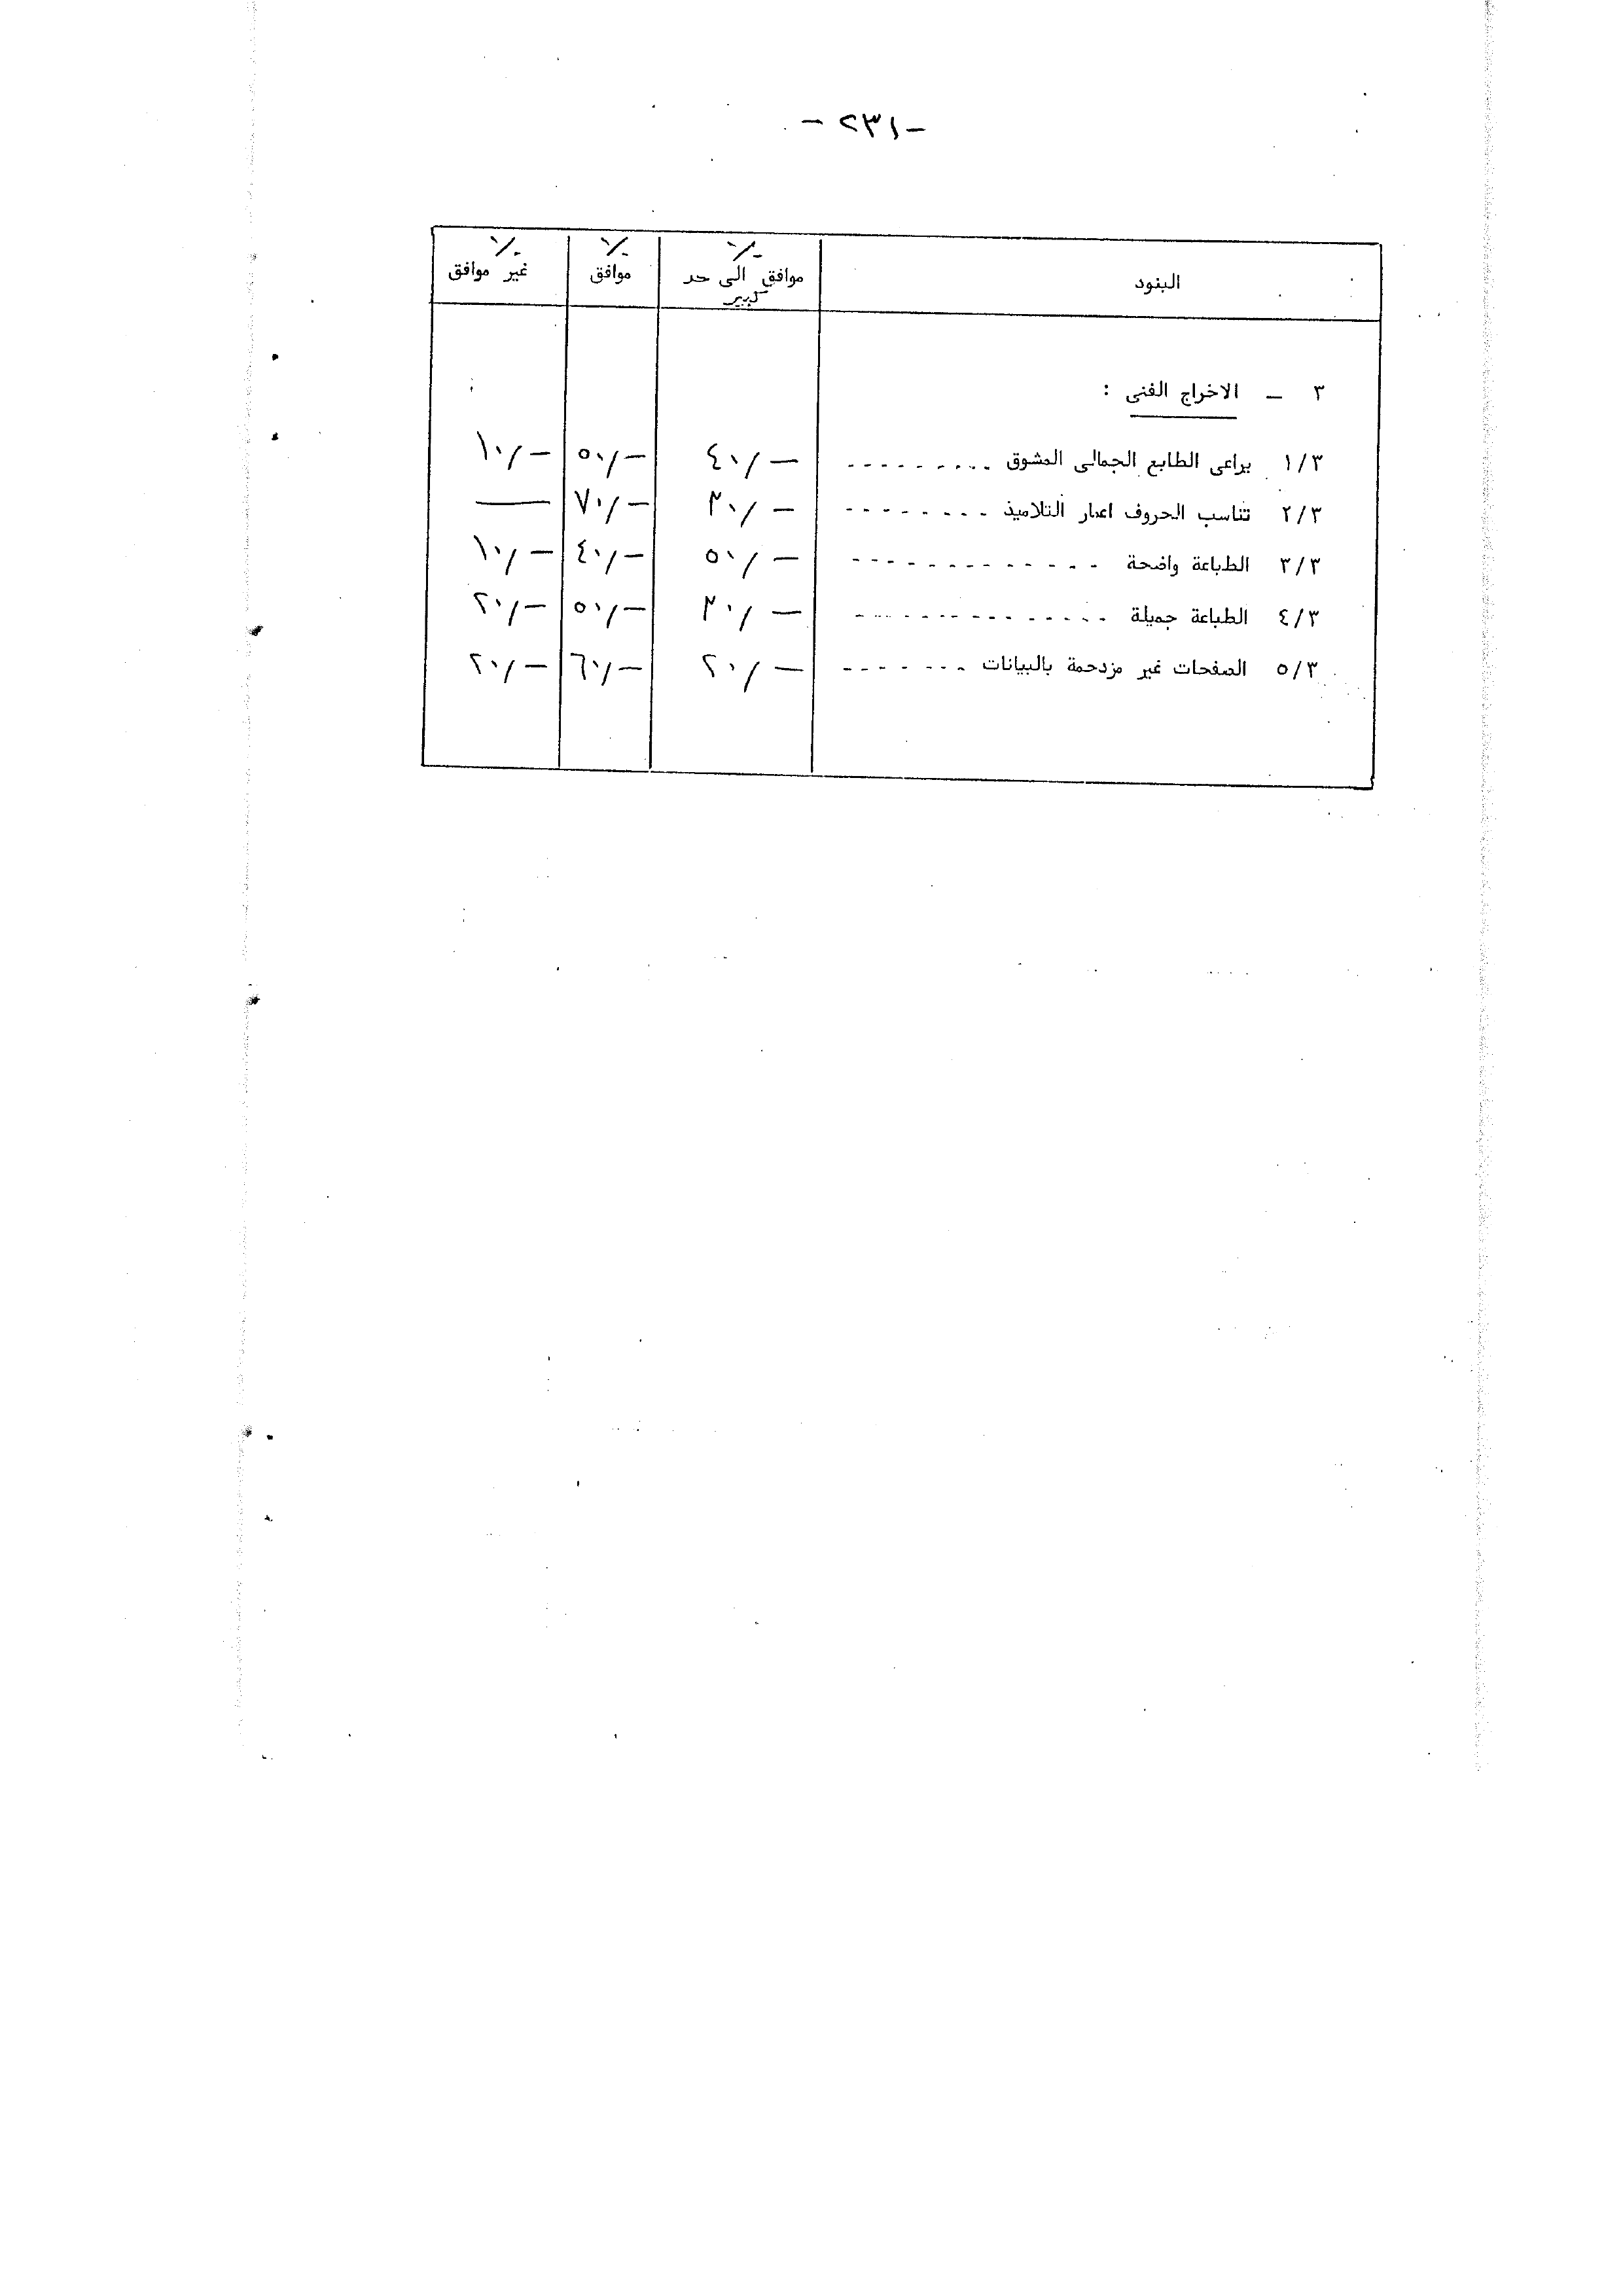 - ٢٣١ -
البنود ٪ موافق الى حد كبير ٪ موافق ٪ غير موافق
٣ - الاخراج الفنى :
١/٣ يراعى الطابع الجمالى المشوق - - - - - - - - - ٤٠/- ٥٠/- ١٠/-
٢/٣ تناسب الحروف اعمار التلاميذ - - - - - - - - ٣٠/- ٧٠/- —
٣/٣ الطباعة واضحة - - - - - - - - - - - - - ٥٠/- ٤٠/- ١٠/-
٤/٣ الطباعة جميلة - - - - - - - - - - - - - - ٣٠/- ٥٠/- ٢٠/-
٥/٣ الصفحات غير مزدحمة بالبيانات - - - - - - - ٢٠/- ٦٠/- ٢٠/-